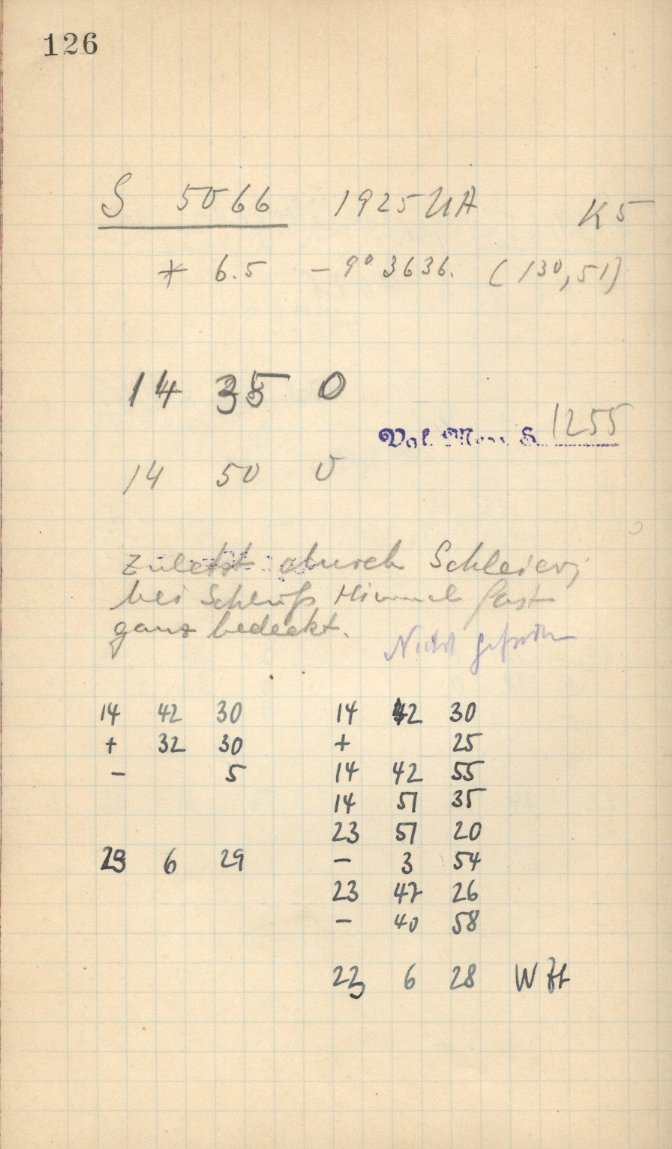 126
S 5066 1925 UA K5
* 6.5 - 9° 3636. (130,51)
14 35 0
1255
14 50 0
Zuletzt durch Schleier,
bei Schluß Himmel fast
ganz bedeckt.
Nicht
14 42 30 14 42 30
+ 32 30 + 25
- 5 14 42 55
14 51 35
23 51 20
23 6 29 - 3 54
23 47 26
- 40 58
23 6 28